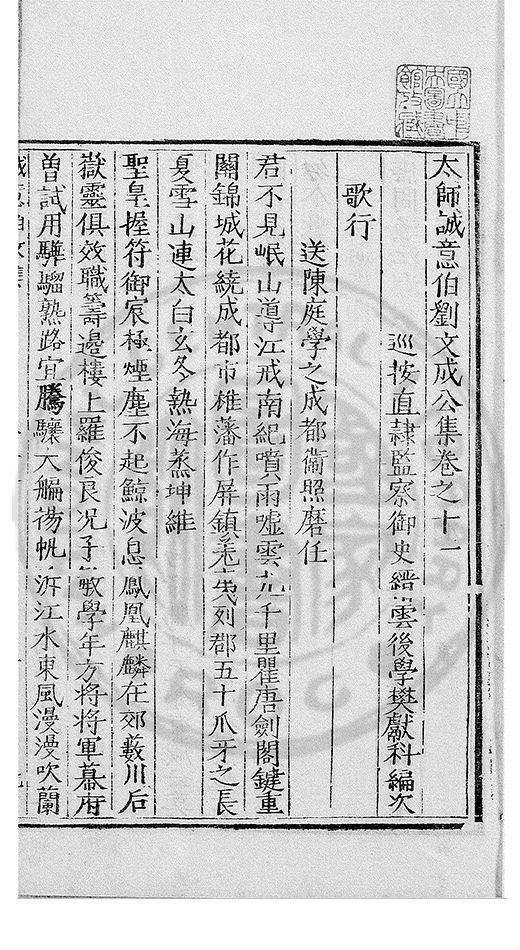 國立中
央圖書
館收藏
太師誠意伯劉文成公集卷之十一
巡按直隸監察御史縉雲後學樊獻科編次
歌行
送陳庭學之成都衞照磨任
君不見岷山導江戒南紀噴雨噓雲九千里瞿唐劍閣鍵重
關錦城花繞成都市雄藩作屏鎮 列郡五十爪牙之長
夏雪山連太白玄冬熱海蒸坤維
聖皇握符御宸極煙塵不起鯨波息鳳凰麒麟在郊藪川后
嶽靈俱效職籌邊樓上羅俊良况子敏學年方將將軍幕府
曽試用驊騮熟路宜騰驤大艑蕩帆泝江水東風漫漫吹蘭
誠意伯文集